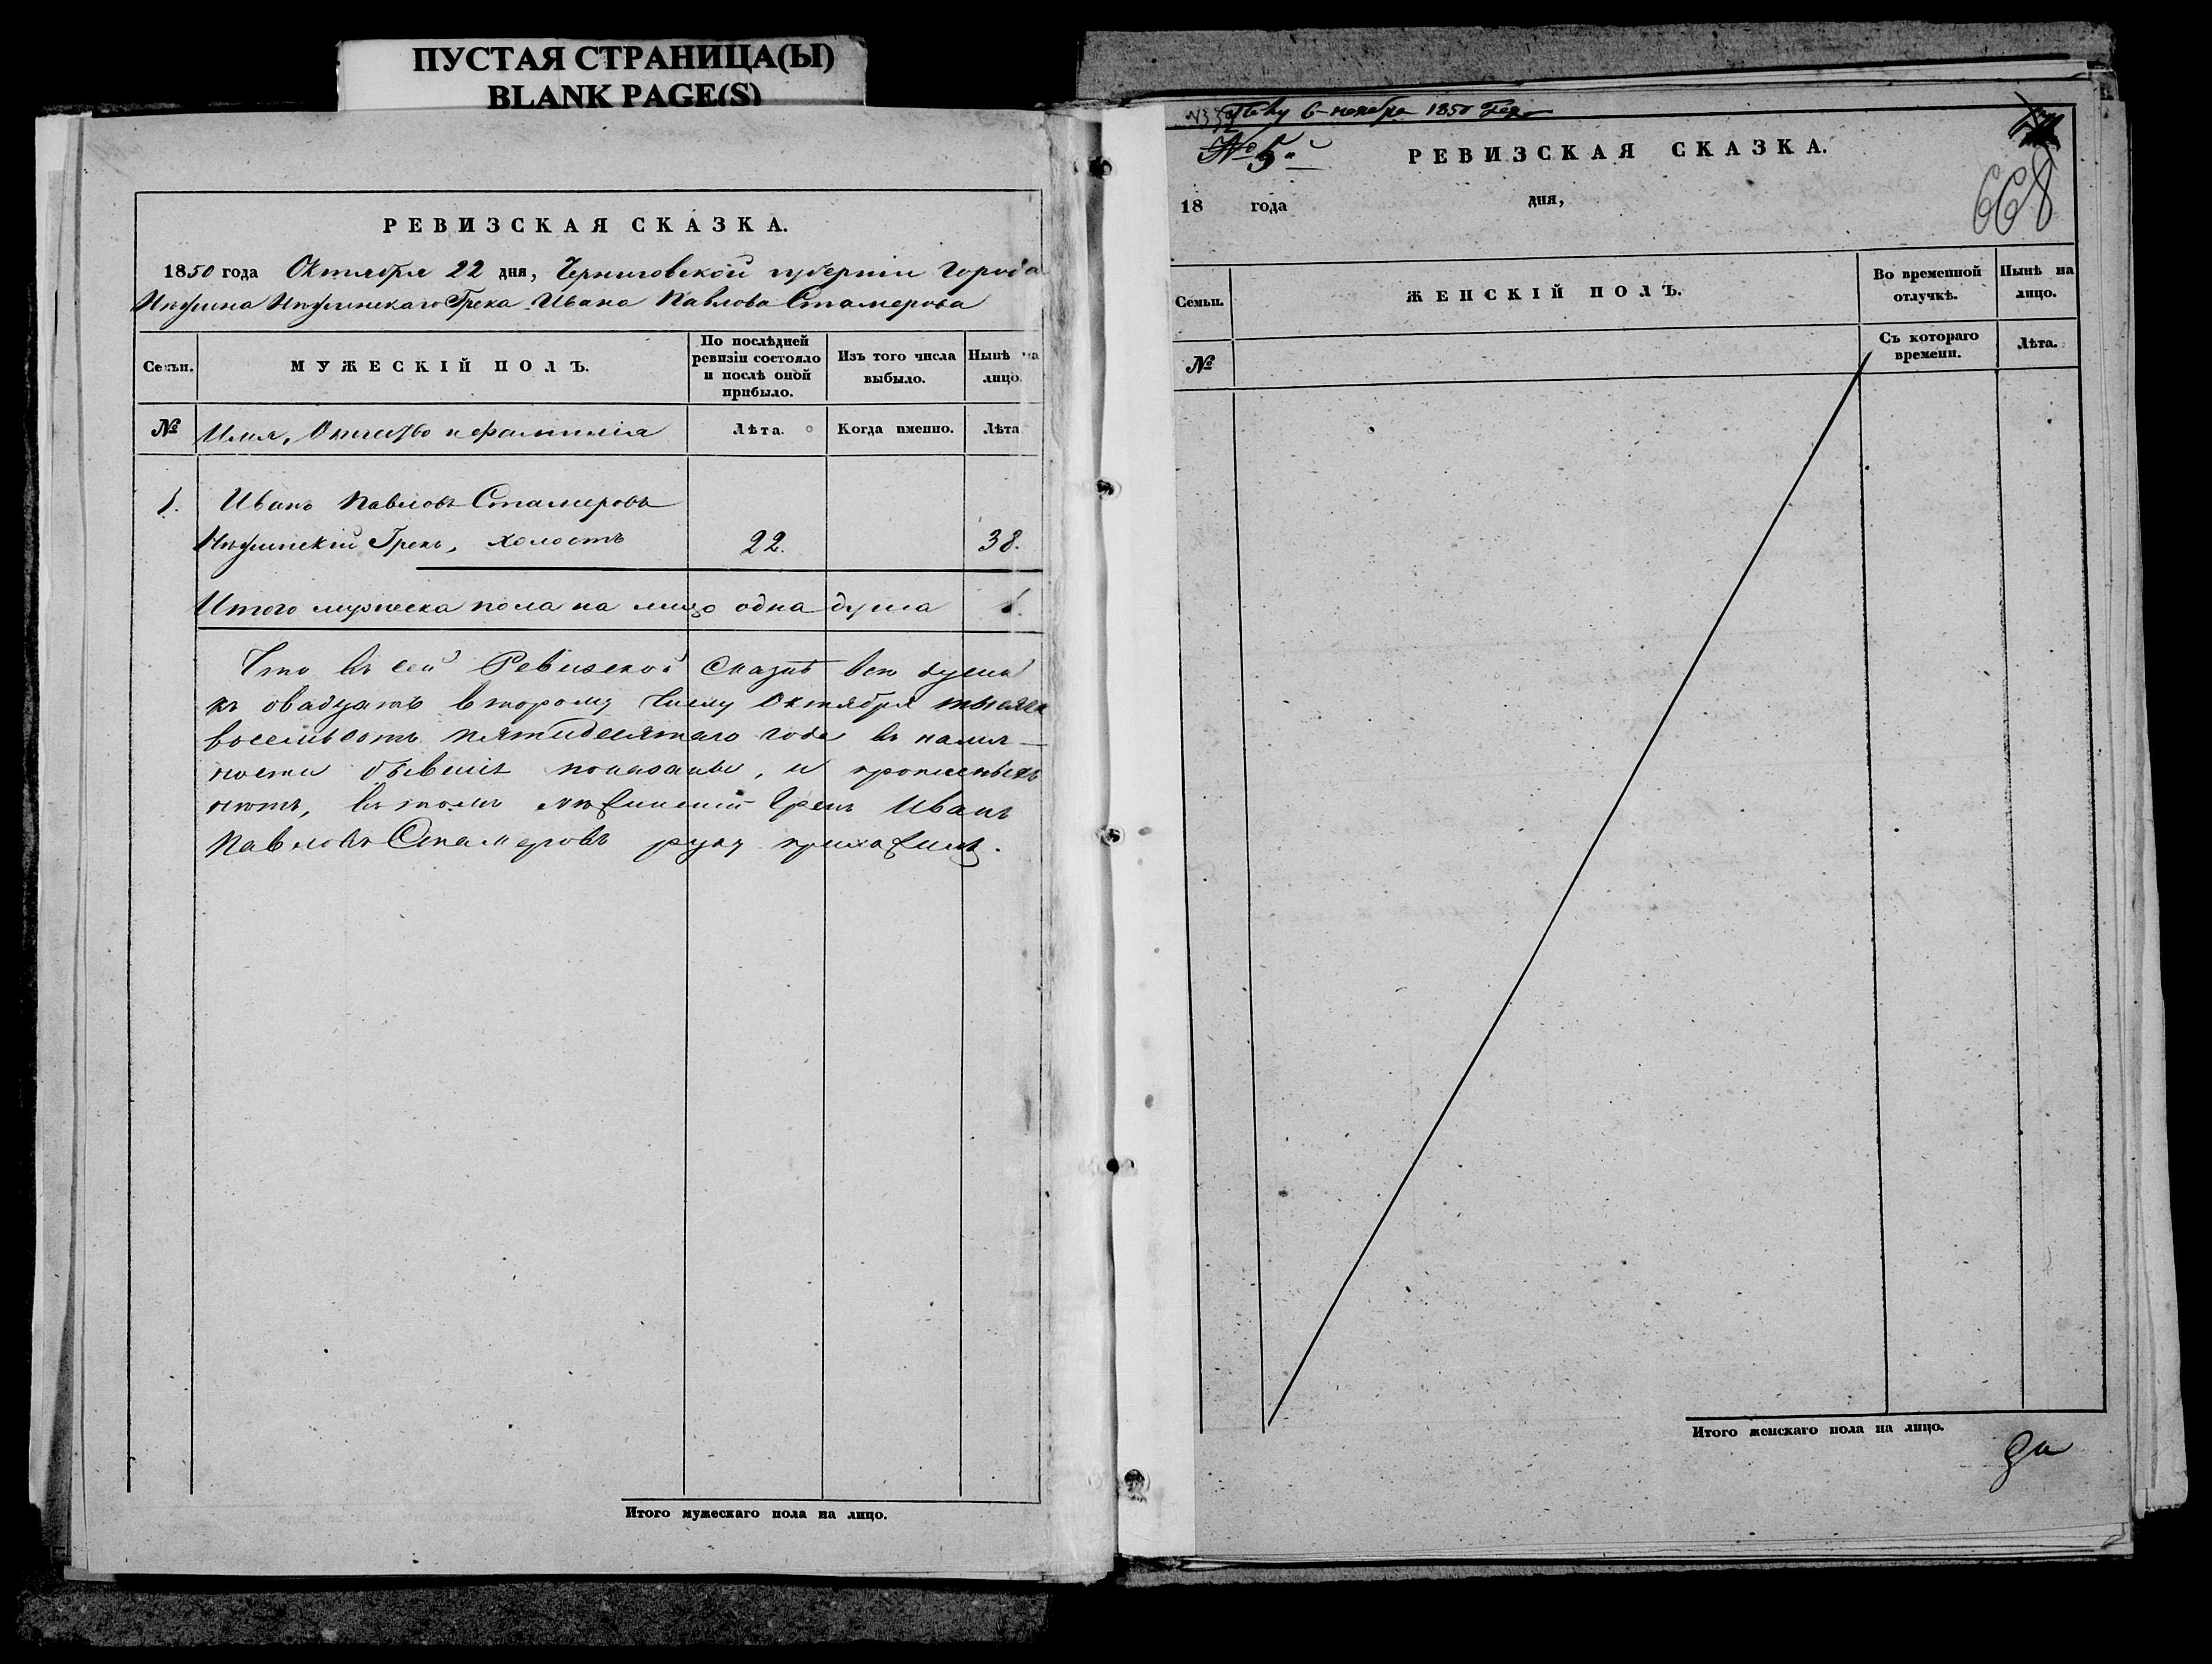 ПУСТАЯ СТРАНИЦА(Ы)
BLANK PAGE(S)
РЕВИЗСКАЯ СКАЗКА.
1850 года Октября 22 дня, Черниговской губернiи Города
Нѣжина Нѣжинскаго Грека Ивана Павлова Стамерова
Семьи.
МУЖЕСКІЙ ПОЛЪ.
По послѣдней
ревизіи состояло
и послѣ оной
прибыло.
Изъ того числа
выбыло.
Нынѣ на
лицо.
№
Имя, Отчество и фамилія
Лѣта.
Когда именно.
Лѣта
1. Иванъ Павловъ Стамеровъ
Нѣжинскій Грекъ, холостъ 22. 38.
Итого мужеска пола на лицо одна душа 1.
Что въ сей Ревизской Сказкѣ всѣ души
къ двадцать второму числу Октября тысяча
восемьсотъ пятидесятаго года въ налич-
ности бывшіе показаны, и
нѣтъ, въ томъ нѣжинскій Грекъ Иванъ
Павловъ Стамеровъ руку приложилъ.
Итого мужескаго пола на лицо.
6 ноября 1850 года
№ 5й
РЕВИЗСКАЯ СКАЗКА.
668
18 года дня,
Семьи.
ЖЕНСКІЙ ПОЛЪ.
Во временной
отлучкѣ.
Нынѣ на
лицо.
№
Съ котораго
времени.
Лѣта.
Итого женскаго пола на лицо.